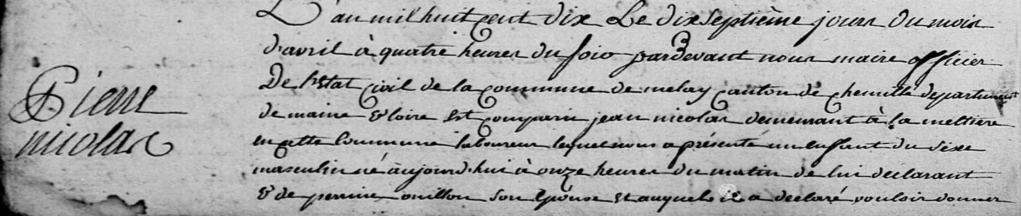 L'an mil huit cent dix Le dix septième jour du mois
d'avril à quatre heures du soir pardevant nous maire officier
De l'état Civil de la Commune de melay Canton de Chemillé département
de maine & loire Est Comparu jean nicolas demeurant à la
en cette Commune laboureur lequel nous a présenté un enfant du sexe
masculin né aujourd'hui à onze heures du matin de lui déclarant
& de perrine son Epouse Et auquel il a déclaré vouloir donner
Pierre
nicolas